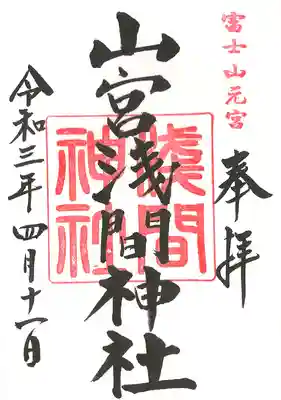 富士山元宮
奉拝
山宮浅間神社
浅間神社
令和三年四月十一日